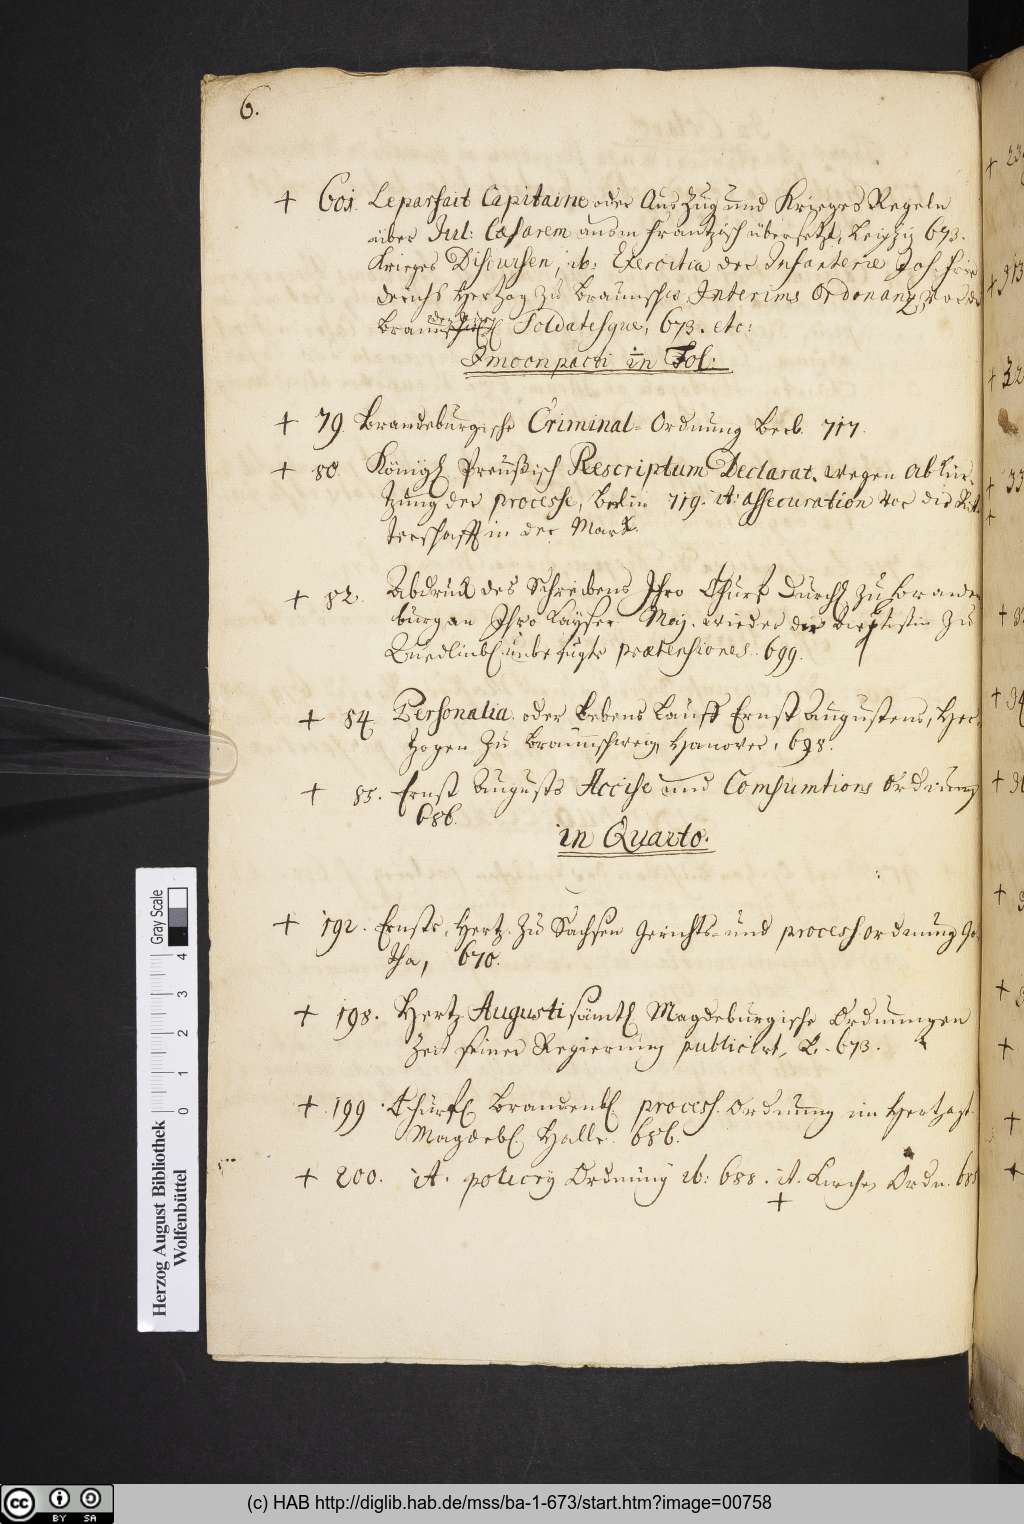 6.
+ 601. Le parfait Capitaine oder Auszug und Krieges Regeln
über Jul: Cæsarem aus m Frantzösisch übersetzt, Leipzig 673.
Krieges Discursen, ib: Exercitia der Infanterie Joh. Frie
derichs Hertzog zu Braunschw. Interims Ordonantz vor der
Soldatesque, 673. etc:
Incompacti in Fol:
+ 79. Brandeburgische Criminal-Ordnung Berl. 717.
+ 80. Königl Preußisch Rescriptum Declarat. wegen Abkür-
tzung der processe, Berlin 719. it: assecuration vor die Rit-
terschafft in der Marck.
+ 82. Abdruck des Schreibens Ihro Churf Durchl zu Branden
burg an Ihro Kayser Maj. wieder die zu
Quedlinb unbefugte prætensiones. 699.
+ 84. Personalia oder Lebens Lauff Ernst Augustens, Her-
zogen zu Braunschweig Hanover, 698.
+ 85. Ernst Augusts Accise und Comsumtions Ordnung
686.
in Quarto.
+ 192. Ernsts, Hertz. zu Sachsen Gerichts- und process ordnung Go
tha, 670.
+ 198. Hertz Augusti sämtl Magdeburgische Ordnungen
Zeit seiner Regierung publicirt, 673.
+ 199. Churfl Brandenbl process Ordnung im Hertzogt.
Magdebl Halle. 686.
+ 200. it. policey Ordnung ib: 688. it. Kirchen Ordn. 685
+
Herzog August Bibliothek
Wolfenbüttel
0 1 2 3 4
Gray Scale
(c) HAB http://diglib.hab.de/mss/ba-1-673/start.htm?image=00758
cc BY SA